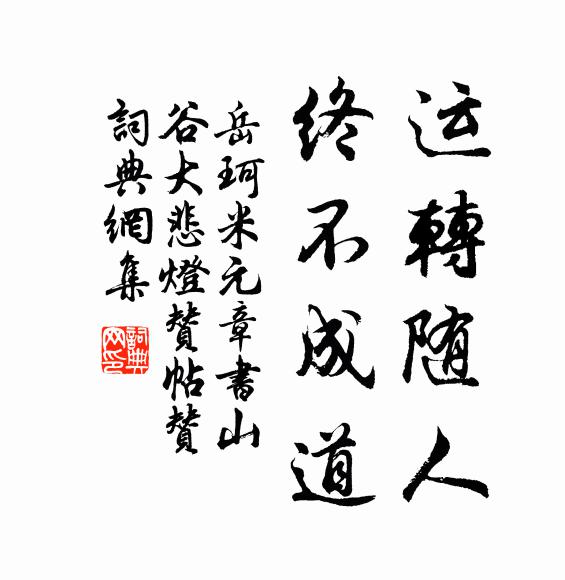 运轉随人
终不成道
岳珂米元章書山
谷大悲燈贊帖贊
詞典網集
詞典网印